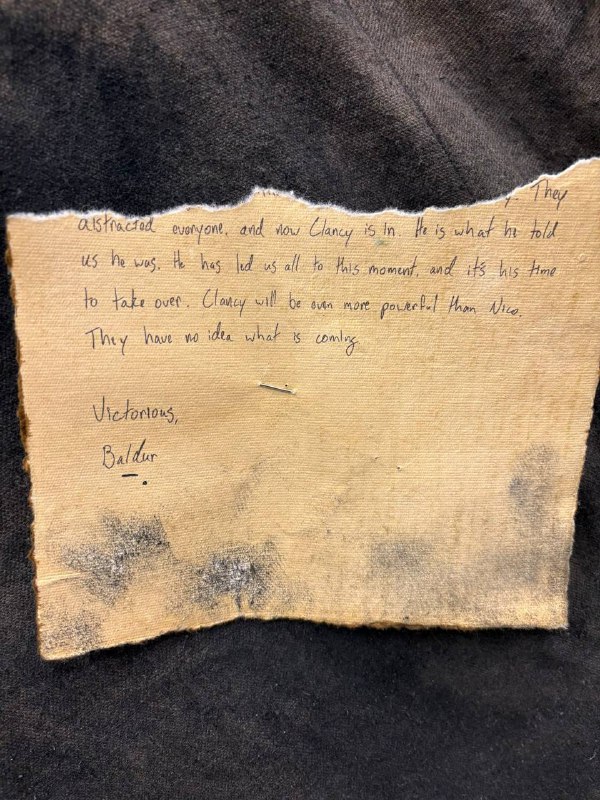 They
distracted everyone, and now Clancy is in. He is what he told
us he was. He has led us all to this moment, and it's his time
to take over. Clancy will be even more powerful than Nico.
They have no idea what is coming
Victorious,
Baldur